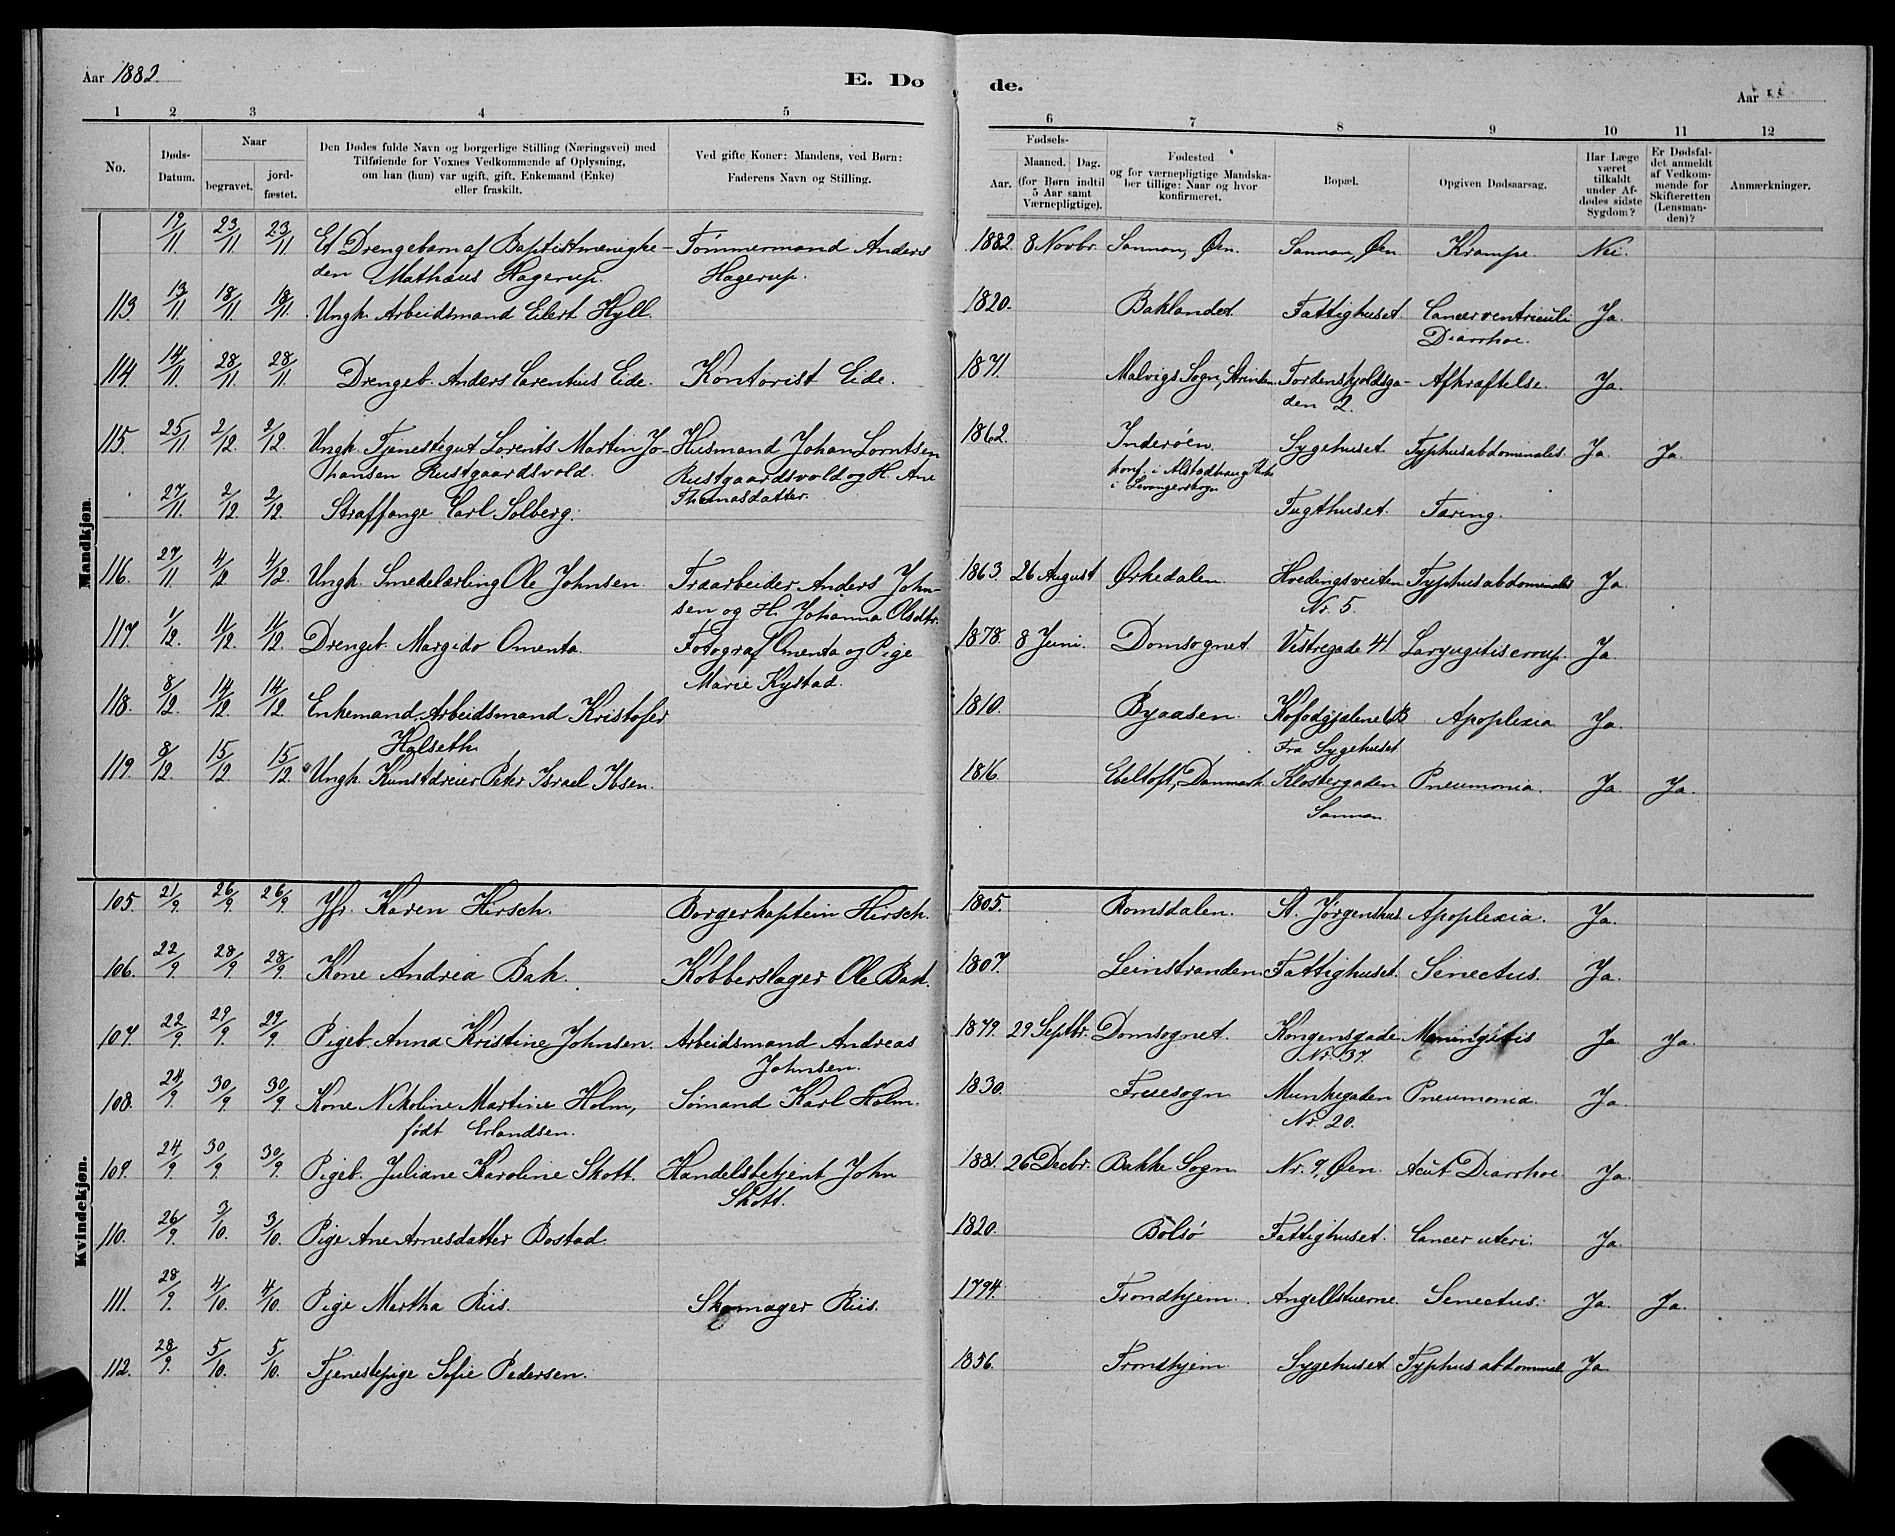 Aar 1882.
E. Dø
de.
Aar
1 2 3 4 5
6 7 8 9 10 11 12
No. Døds-Datum. Naar begravet. jordfæstet. Den Dødes fulde Navn og borgerlige Stilling (Næringsvei) med Tilføiende for Voxnes Vedkommende af Oplysning, om han (hun) var ugift, gift, Enkemand (Enke) eller fraskilt. Ved gifte Koner: Mandens, ved Børn: Faderens Navn og Stilling.
Fødsels- Aar. Maaned. Dag. (for Børn indtil 5 Aar samt Værnepligtige). Fødested og for værnepligtige Mandskaber tillige: Naar og hvor konfirmeret. Bopæl. Opgiven Dødsaarsag. Har Læge været tilkaldt under Afdødes sidste Sygdom? Er Dødsfaldet anmeldt af Vedkommende for Skifteretten (Lensmanden)? Anmærkninger.
Mandkjøn.
19/11 23/11 23/11 Et Drengebarn af Baptistmenighe- Tømmermand Anders 1882. 8 Novbr. Sannan, Øen. Sannan, Øen Krampe. Nei.
den Mathäus Hagerup. Hagerup.
113. 13/11 18/11 18/11. Ungk. Arbeidsmand Elert Hyll. 1820. Baklandet Fattighuset. Cancer ventriculi Ja.
Diarrhoe.
114. 14/11 28/11 28/11. Drengeb. Anders Carentius Eide. Kontorist Eide. 1871. Malvigs Sogn, Strinden Tordenskjoldsga- Afkræftelse. Ja.
den 2.
115. 25/11 2/12. 2/12. Ungk. Tjenestegut Lorents Martin Jo- Husmand Johan Lorntsen 1862. Inderøen. Sygehuset. Typhus abdominalis. Ja. Ja.
hansen Rustgaardsvold. Rustgaardsvold og H. Ane konf. i Alstadhaug Kirke
Thomasdatter. i Levangers Sogn
27/11. 2/12 2/12. Straffange Carl Solberg. Tugthuset. Tæring.
116. 27/11 4/12 4/12. Ungk. Smedelærling Ole Johnsen. Træarbeider Anders John- 1863. 26 August Ørkedalen. Hvedingsveiten Typhus abdominalis Ja
sen og H. Johanna Olsdtr. Nr. 5.
117. 1/12. 11/12. 11/12. Drengeb. Margido Omenta. Fotograf Omenta og Pige 1878. 8 Juni. Domsognet. Vestregade 41 Laryngitis croup. Ja.
Marie Kystad.
118. 8/12. 14/12. 14/12 Enkemand, Arbeidsmand Kristofer 1810. Byaasen. Kofodgjælene 6B Apoplexia Ja.
Halseth. Fra Sygehuset
119. 8/12 15/12 15/12 Ungk. Kunstdreier Peter Israel Ibsen. 1816. Ebeltoft, Danmark. Klostergaden Pneumonia. Ja. Ja.
Sannan.
Kvindekjøn.
105. 21/9. 26/9. 26/9. Jfr. Karen Hirsch. Borgerkaptein Hirsch. 1805. Romsdalen. St. Jørgenshus. Apoplexia. Ja.
106. 22/9 28/9 28/9 Kone Andrea Bak. Kobberslager Ole Bak. 1807. Leinstranden Fattighuset. Senectus. Ja.
107. 22/9 29/9 29/9 Pigeb. Anna Kristine Johnsen. Arbeidsmand Andreas 1879. 29. Septbr. Domsognet. Kongensgade Meningitis Ja Ja.
Johnsen. Nr. 37.
108. 24/9. 30/9 30/9 Kone Nikoline Martine Holm, Sømand Karl Holm. 1830. Freiesogn Munkegaden Pneumonia. Ja.
født Erlandsen. Nr. 20.
109. 24/9. 30/9. 30/9. Pigeb. Juliane Karoline Skott. Handelsbetjent John 1881. 26 Decbr. Bakke Sogn Nr. 9, Øen. Acut Diarrhoe. Ja.
Skott.
110. 26/9. 3/10. 3/10. Pige Ane Arnesdatter Bostad. 1820. Bolsø Fattighuset. Cancer uteri. Ja.
111. 28/9. 4/10. 4/10. Pige Martha Riis. Skomager Riis. 1794. Trondhjem. Angellstuerne. Senectus. Ja. Ja.
112. 28/9. 5/10. 5/10. Tjenestepige Sofie Pedersen. 1856. Trondhjem Sygehuset. Typhus abdominal Ja.